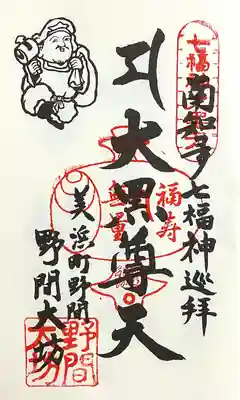 南知多七福神巡拝
大黒尊天
美浜町野間
野間大坊
七福
福寿
無量
野間
大坊